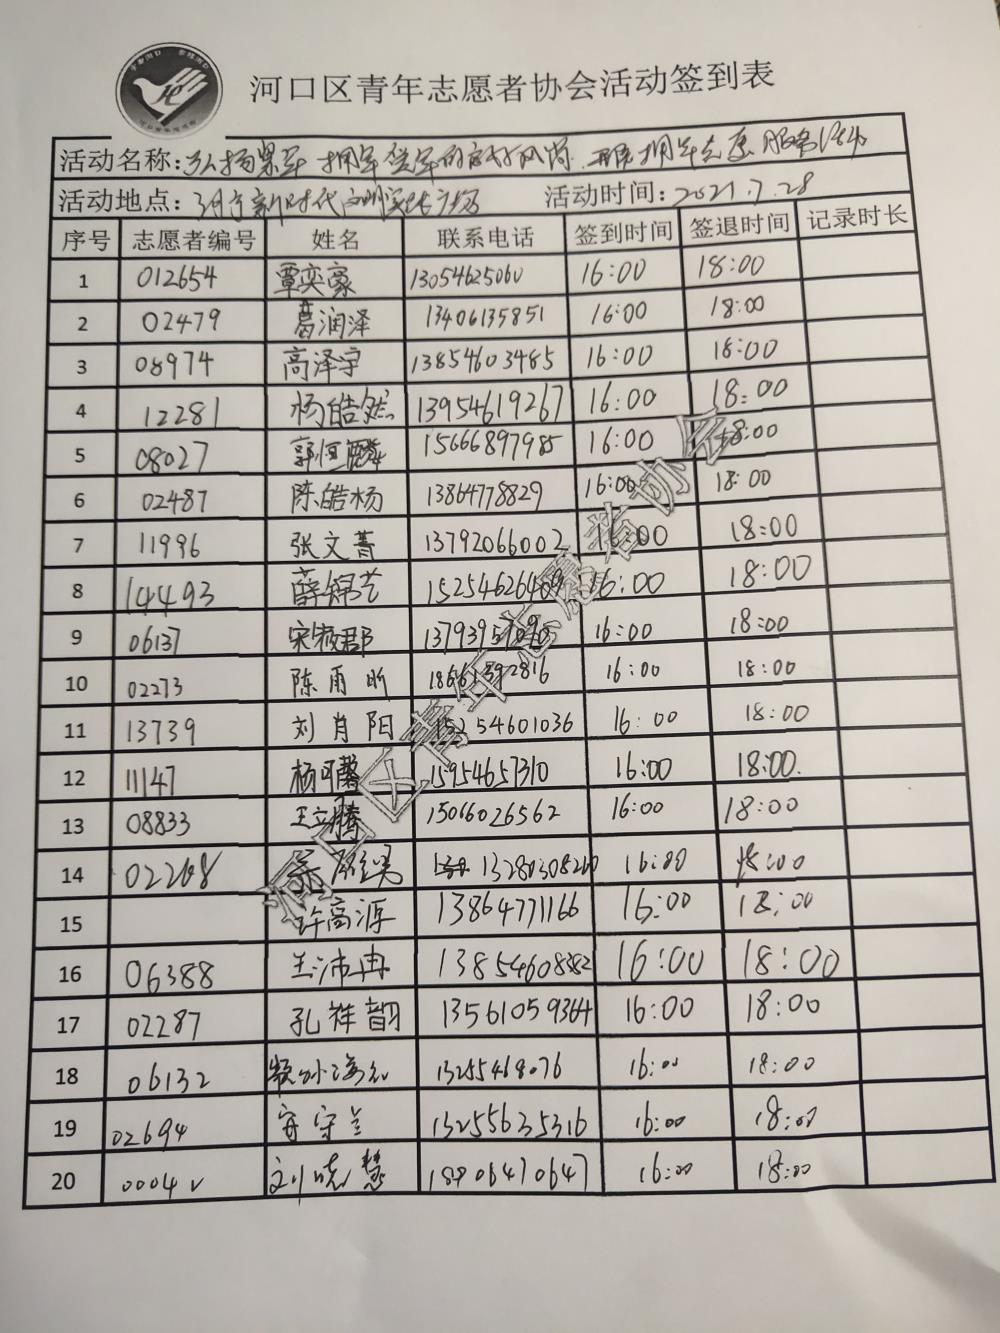 河口区青年志愿者协会活动签到表
活动名称:弘扬 拥军 的 拥军志愿服务活动
活动地点: 新时代文明实践广场 活动时间:2021.7.28
序号 志愿者编号 姓名 联系电话 签到时间 签退时间 记录时长
1 012654 覃奕豪 13054625060 16:00 18:00
2 02479 葛润泽 13406135851 16:00 18:00
3 08974 高泽宇 13854603485 16:00 18:00
4 12281 杨皓然 13954619267 16:00 18:00
5 08027 郭恒麟 15666897985 16:00 18:00
6 02487 陈皓杨 13864778829 16:00 18:00
7 11996 张文菁 13792066002 16:00 18:00
8 14493 薛锦艺 16:00 18:00
9 06137 16:00 18:00
10 02273 陈雨昕 16:00 18:00
11 13739 刘肖阳 15254601036 16:00 18:00
12 11147 杨可馨 15954657310 16:00 18:00.
13 08833 王立腾 15066026562 16:00 18:00
14 02268 16:00 18:00
15 许高源 13864771166 16:00 18:00
16 06388 王沛冉 16:00 18:00
17 02287 孔祥韵 13561059364 16:00 18:00
18 06132 13255468076 16:00 18:00
19 02694 守兰 13255635316 16:00 18:00
20 0004 刘晓慧 16:00 18:00
河口区青年志愿者协会